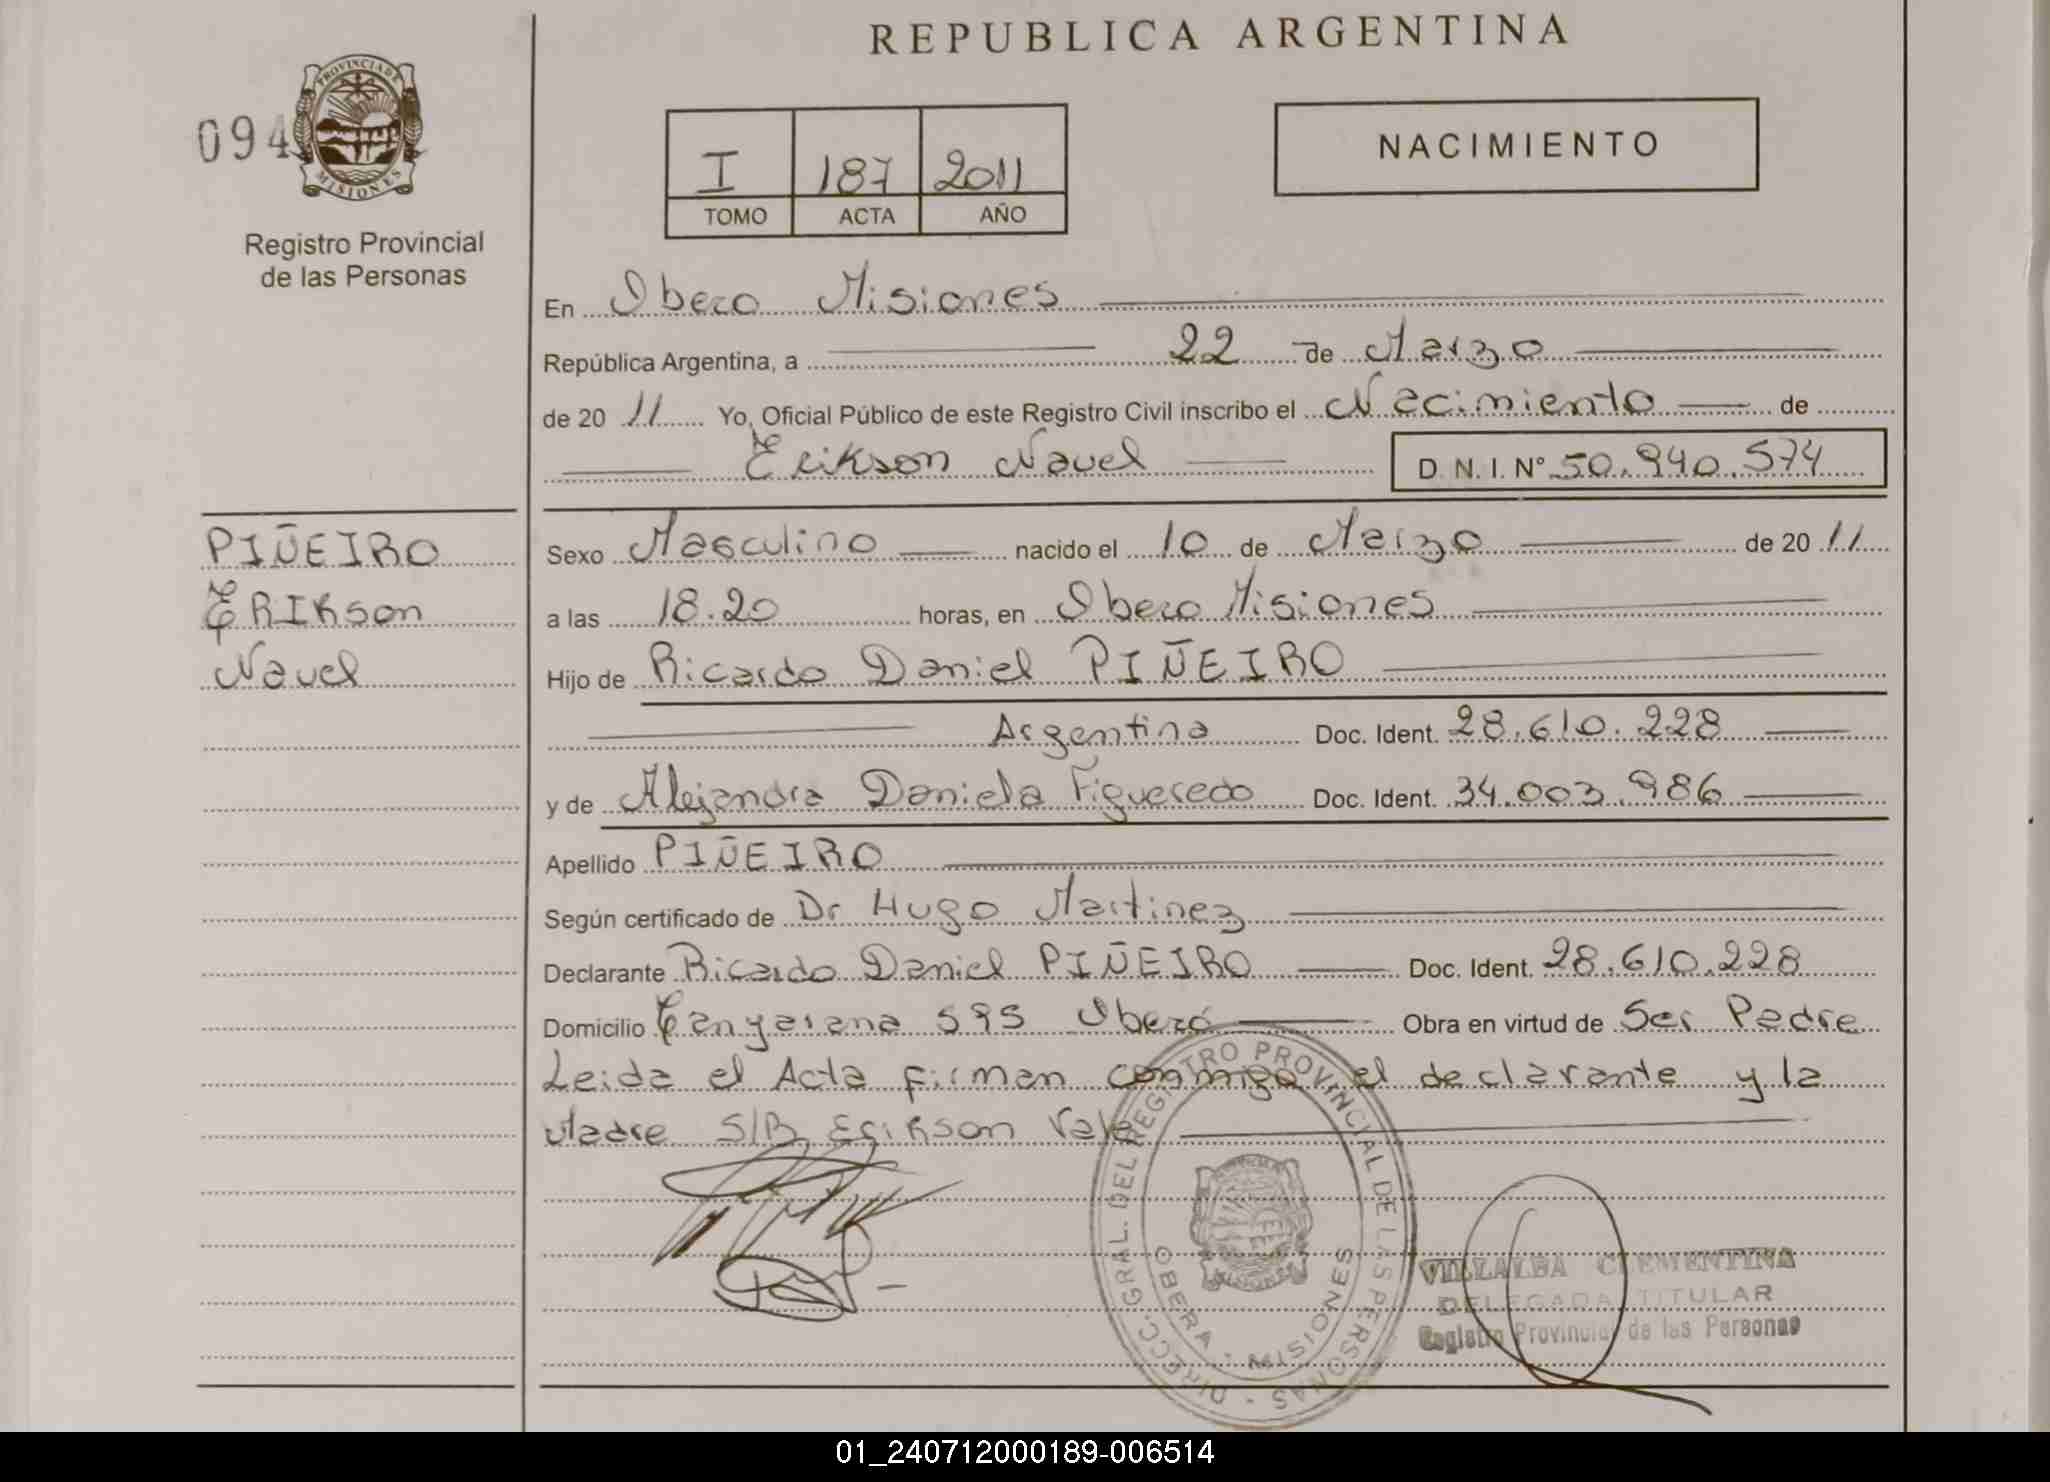 REPUBLICA ARGENTINA
094
PROVINCIA DE
MISIONES
Registro Provincial
de las Personas
I 187 2011
TOMO ACTA AÑO
NACIMIENTO
En Obera Misiones
República Argentina, a 22 de Marzo
de 20 11 Yo, Oficial Público de este Registro Civil inscribo el Nacimiento de
Erikson Nauel D.N.I. Nº 50.940.574
PIÑEIRO
ERIKson
Nauel
Sexo Masculino nacido el 10 de Marzo de 20 11
a las 18.20 horas, en Obera Misiones
Hijo de Ricardo Daniel PIÑEIRO
Argentina Doc. Ident. 28.610.228
y de Alejandra Daniela Figueredo Doc. Ident. 34.003.986
Apellido PIÑEIRO
Según certificado de Dr Hugo Martinez
Declarante Ricardo Daniel PIÑEIRO Doc. Ident. 28.610.228
Domicilio 595 Oberá Obra en virtud de Ser Padre
Leida el Acta firman conmigo el declarante y la
Madre S/B Erikson Vale
DIRECC. GRAL. DEL REGISTRO PROVINCIAL DE LAS PERSONAS
OBERA - MISIONES
VILLALBA CLEMENTINA
DELEGADA TITULAR
Registro Provincial de las Personas
01_240712000189-006514